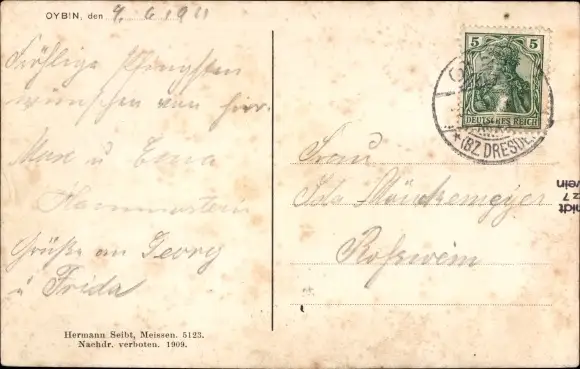 OYBIN, den 4. 6. 1911
Fröhliche Pfingsten
wünschen von hier.
Max u Erna
Kammerstein
Grüße an Georg
u Frida
Hermann Seibt, Meissen. 5123.
Nachdr. verboten. 1909.
5 5
DEUTSCHES REICH
(BZ. DRESDEN
Frau
Ida
Roßwein